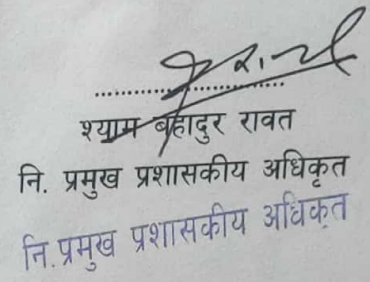 ....................................
श्याम बहादुर रावत
नि. प्रमुख प्रशासकीय अधिकृत
नि.प्रमुख प्रशासकीय अधिकृत